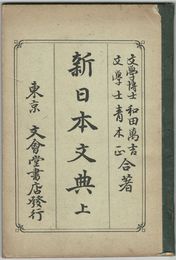 文學博士 和田萬吉
文學士 青木正
合著
新日本文典 上
東京 文會堂書店發行